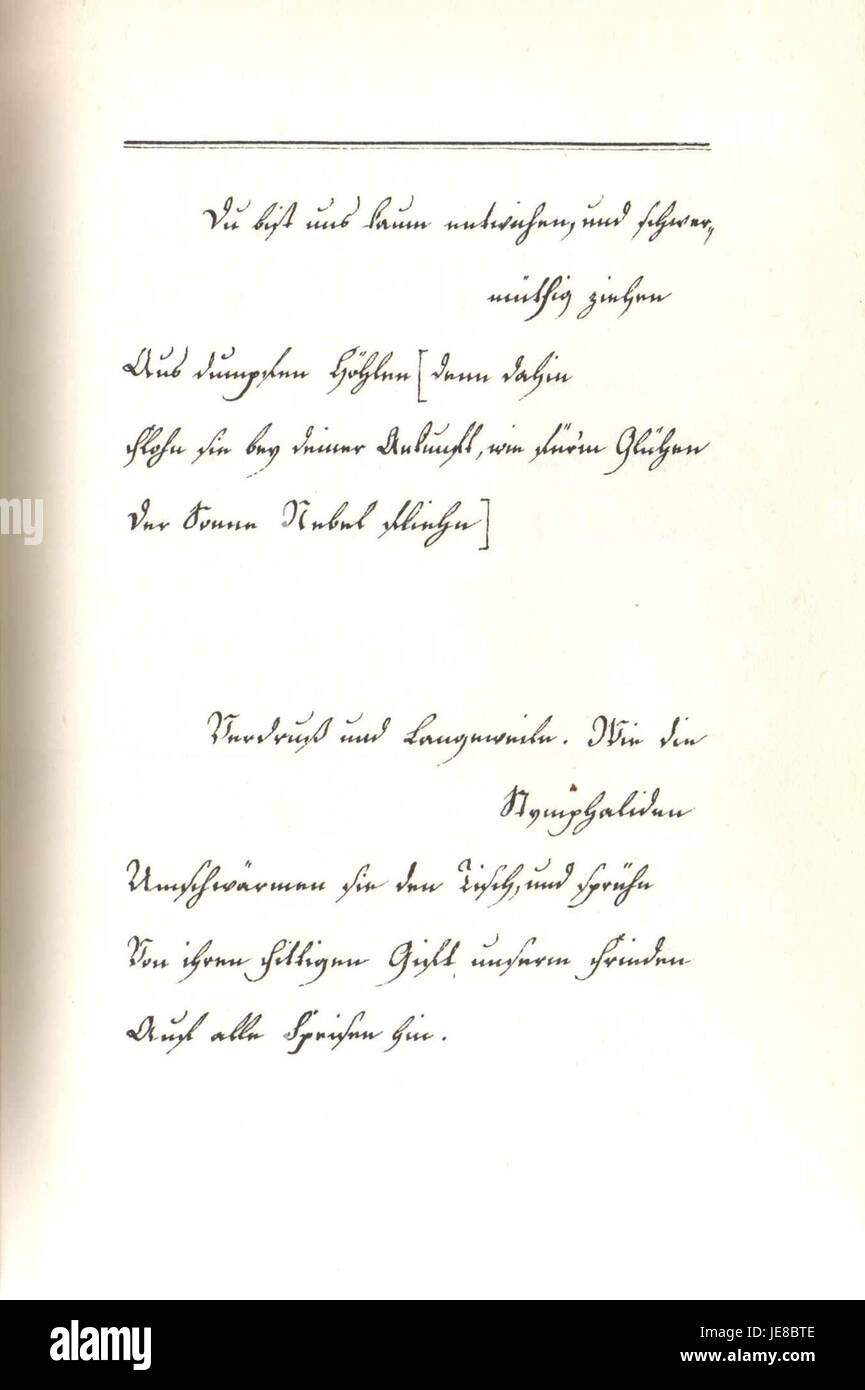 Du bist uns kaum entwichen, und schwer„
müthig ziehen
Aus dumpfen Höhlen [denn dahin
flohn sie bey deiner Ankunft, wie für'm Glühen
der Sonne Nebel fliehn]
Verdruß und Langeweile. Wie die
Stymphaliden
Umschwärmen sie den Tisch, und sprühn
Von ihren Fittigen Gift unserm Frieden
Auf alle Speisen hin.
my
alamy
Image ID: JE8BTE
www.alamy.com